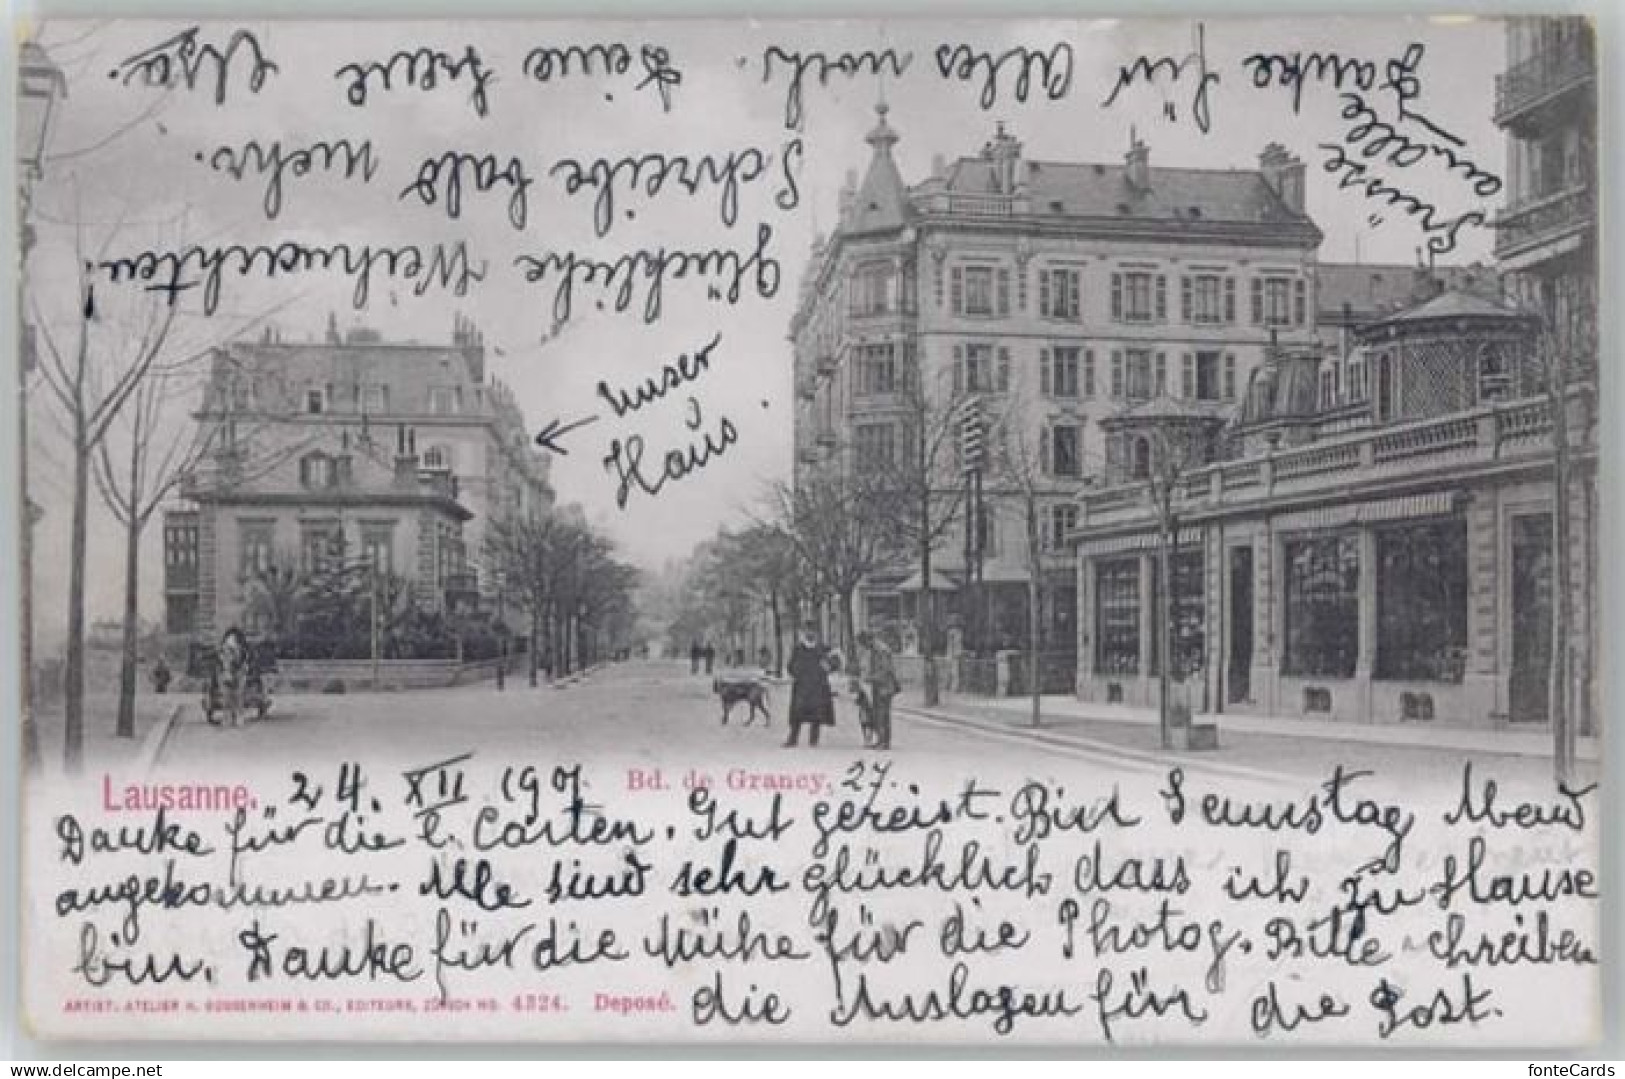 Lausanne. 24. XII 1901. Bd. de Grancy, 27.
Danke für die l. Carten. Gut gereist. Bin Samstag Abend
angekommen. Alle sind sehr glücklich dass ich zu Hause
bin. Danke für die Mühe für die Photog. Bitte schreiben
die Auslagen für die Post.
ARTIST. ATELIER H. GUGGENHEIM & CO., EDITEURS, ZÜRICH NO. 4324. Deposé.
Unser
Haus.
Glückliche Weihnachten!
Schreibe bald mehr.
Danke für Alles noch. Deine treue
Grüsse
an alle
fonteCards